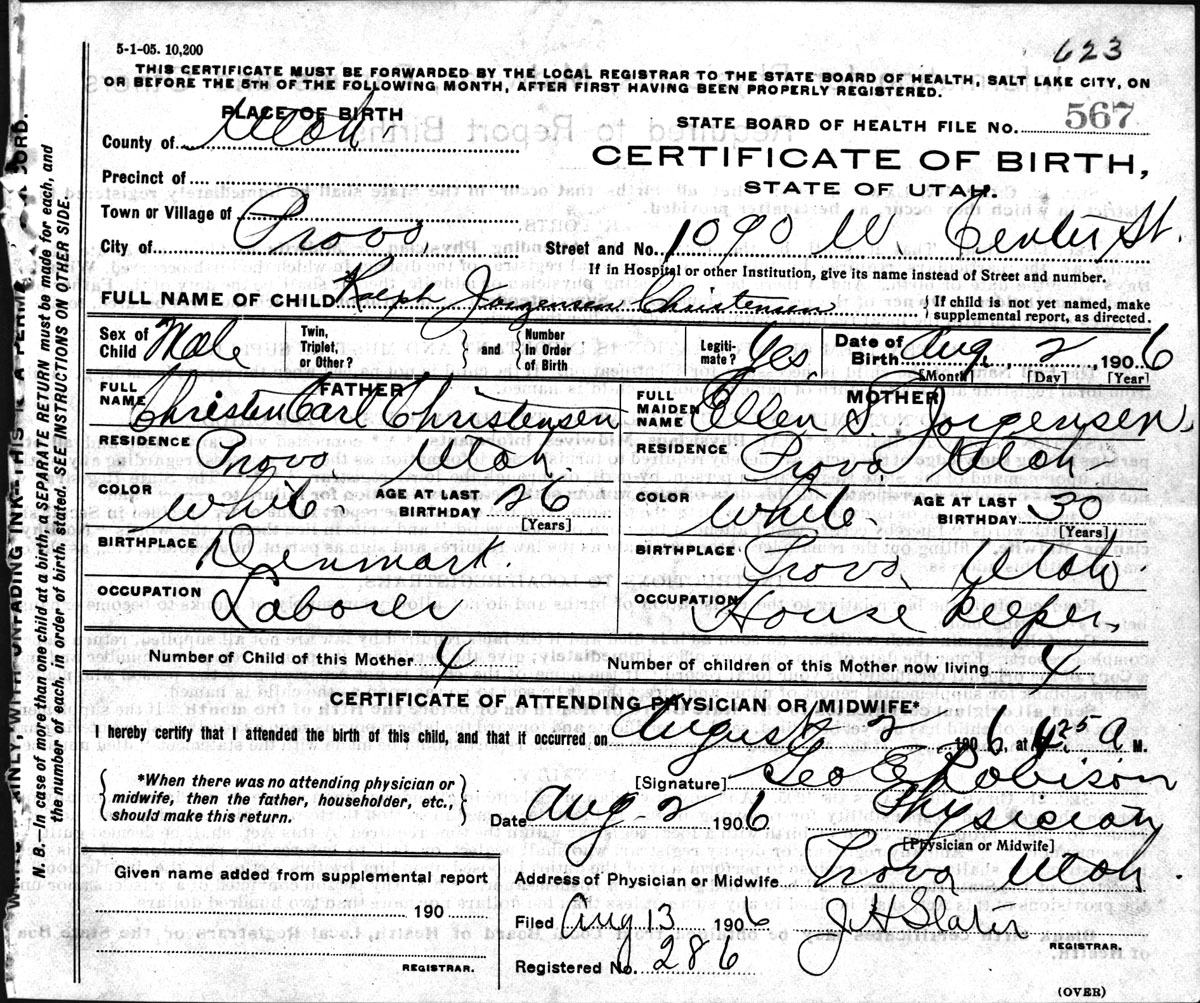 5-1-05. 10,200
623
THIS CERTIFICATE MUST BE FORWARDED BY THE LOCAL REGISTRAR TO THE STATE BOARD OF HEALTH, SALT LAKE CITY, ON
OR BEFORE THE 5TH OF THE FOLLOWING MONTH, AFTER FIRST HAVING BEEN PROPERLY REGISTERED.
PLACE OF BIRTH
STATE BOARD OF HEALTH FILE NO. 567
County of Utah.
CERTIFICATE OF BIRTH,
STATE OF UTAH.
Precinct of
Town or Village of
City of Provo
Street and No. 1090 W Center St.
If in Hospital or other Institution, give its name instead of Street and number.
FULL NAME OF CHILD Ralph Jorgensen Christensen
{ If child is not yet named, make
supplemental report, as directed.
Sex of Child Male
Twin, Triplet, or Other?
and
Number in Order of Birth
Legiti-mate? Yes
Date of Birth Aug. 2, 1906
[Month] [Day] [Year]
FATHER
FULL NAME Christen Carl Christensen
RESIDENCE Provo Utah.
COLOR White
AGE AT LAST BIRTHDAY 26
[Years]
BIRTHPLACE Denmark.
OCCUPATION Laborer
MOTHER
FULL MAIDEN NAME Ellen S. Jorgensen.
RESIDENCE Provo Utah
COLOR White
AGE AT LAST BIRTHDAY 30
[Years]
BIRTHPLACE Provo Utah
OCCUPATION House Keeper.
Number of Child of this Mother 4
Number of children of this Mother now living 4
CERTIFICATE OF ATTENDING PHYSICIAN OR MIDWIFE*
I hereby certify that I attended the birth of this child, and that it occurred on August 2 1906, at 4.25 A M.
{ *When there was no attending physician or
midwife, then the father, householder, etc.,
should make this return. }
[Signature] Geo E Robison
Date Aug-2 1906
Physician
[Physician or Midwife]
Given name added from supplemental report
190
REGISTRAR.
Address of Physician or Midwife Provo Utah.
Filed Aug 13 1906
J H Slater
REGISTRAR.
Registered No. 286
(OVER)
N. B.—In case of more than one child at a birth, a SEPARATE RETURN must be made for each, and
the number of each, in order of birth, stated. SEE INSTRUCTIONS ON OTHER SIDE.